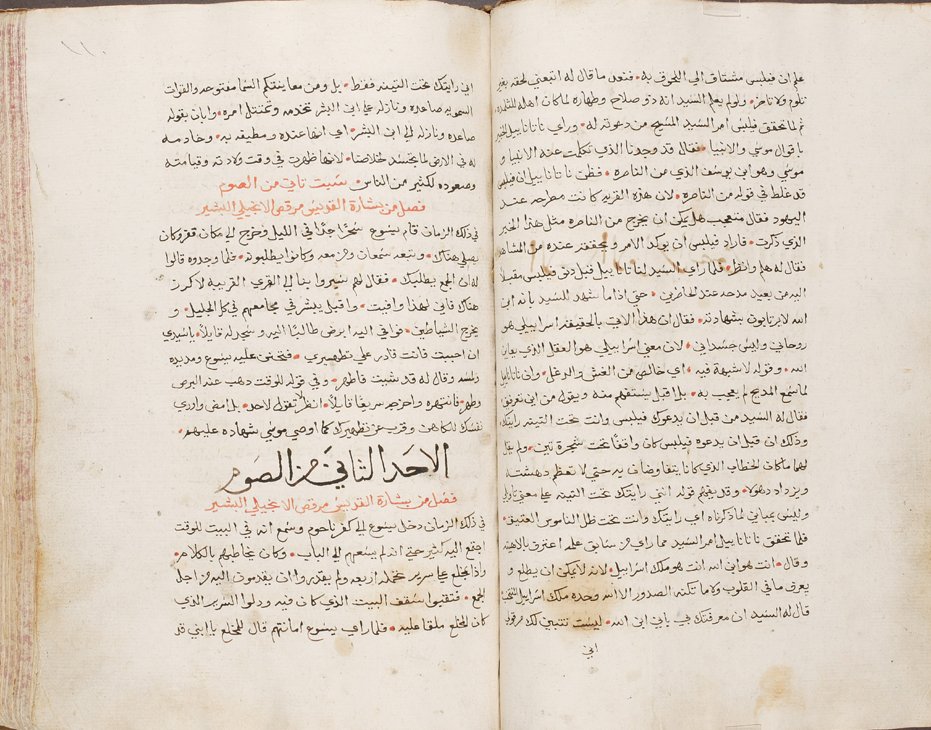 علم ان فيلبس مشتاق الي اللحوق به • فنعل ما قال له اتبعني لحقه بغير
تلوم ولا تاخر • ولولم يعلم السيد انه ذو صلاح وطهاره لما كان اهله للتلمذه
ثم لما تحقق فيلبس امر السيد المسيح من دعوته له • وراي ناتانابيل اخبره
باقوال موسي والانبيا • فقال قد وجدنا الذي تكلمت عنه الانبيا و
موسي وهو ابن يوسف الذي من الناصره • فظن ناتانابيل ان فيلبس
قد غلط في قوله من الناصره • لان هذه القريه كانت مطرحه عند
اليهود فقال متعجب هل يمكن ان يخرج من الناصره مثل هذا الخير
الذي ذكرت • فاراد فيلبس ان يوكد الامر ويحققه عنده من المشاهده
فقال له هلم وانظر • فلما راي السيد لناتانابيل قبل دنو فيلبس مقبلا
اليه من بعيد مدحه عند الحاضرين • حتي اذا ما شهد السيد بانه ابن
الله لا يرتابون بشهادته • فقال ان هذا الاتي بالحقيقه اسراييلي هو
روحاني وليس جسداني • لان معني اسراييلي هو العقل الذي يعاين
الله • وقوله لا شبهة فيه • اي خالص من الغش والدغل • وان ناتانابيل
لما سمع المديح لم يعجب به • بل اقبل يستفهم منه ويقوله من اين تعرفني
فقال له السيد من قبل ان يدعوك فيلبس وانت تحت التينه رايتك
وذلك ان قبل ان يدعوه فيلبس كان واقفا تحت شجرة تين • ولم يقل
لهما ما كان الخطاب الذي كانا يتفاوضان به حتي لا تعظم دهشته
ويزداد دهولا • وقد يفهم قوله انني رايتك تحت التينه علي معني تاويلي
وليس بمباين لما ذكرناه اي رايتك وانت تحت ظل الناموس العتيق •
فلما تحقق ناتانابيل امر السيد مما راي من سابق علمه اعترف بالاهيته
وقال • انت هو ابن الله انت هو ملك اسراييل • لانه لا يمكن ان يطلع و
يعرف ما في القلوب ولا ما تكنه الصدور الا الله وحده ملك اسراييل
قال له السيد ان معرفتك بي باني ابن الله • ليست تتبين لك من قولي
اني
١١٠
اني رايتك تحت التينه فقط • بل ومن معاينتكم السما مفتوحه والقوات
السموية صاعده ونازله علي ابن البشر تخدمه وتمتثل امره • وابان بقوله
صاعده ونازله الي ابن البشر • اي انها عنده ومطيفه به • وخادمه
له في الارض لما تجسد لخلاصنا • لانها ظهرت في وقت ولادته وقيامته
وصعوده لكثير من الناس • سبت تاني من الصوم
فصل من بشارة القديس مرقص الانجيلي البشير
في ذلك الزمان قام يسوع سحرا جدا في الليل وخرج الي مكان قفر وكان
يصلي هناك • وتبعه سمعان ومن معه وكانوا يطلبونه • فلما وجدوه قالوا
له ان الجمع يطلبك • فقال لهم سيروا بنا الي القري القريبه لاكرز
هناك فاني لهذا وافيت • واقبل يبشر في مجامعهم في كل الجليل • و
يخرج الشياطين • فوافي اليه ابرص طالبا اليه وسجد له قايلا • يا سيدي
ان احببت فانت قادر علي تطهيري • فتحنن عليه يسوع ومد يده
ولمسه وقال له قد شيت فاطهر • وفي قوله للوقت دهب عنه البرص
وطهر • فانتهره واخرجه سريعا قايلا • انظر لا تقول لاحد • بل امض واري
نفسك للكاهن وقرب عن تطهيرك كما اوصي موسي شهاده عليهم •
الاحد الثاني من الصوم
فصل من بشارة القديس مرقص الانجيلي البشير
في ذلك الزمان دخل يسوع الي كفر ناحوم وسمع انه في البيت للوقت
اجتمع اليه كثير حتي انه لم يسعهم الي الباب • وكان يخاطبهم بالكلام •
واذا مخلع علي سرير تحمله اربعه ولم يقدروا ان يقدموه اليه من اجل
الجمع • فنقبوا سقف البيت الذي كان فيه ودلوا السرير الذي
كان المخلع ملقا عليه • فلما راي يسوع امانتهم قال للمخلع يا ابني قد